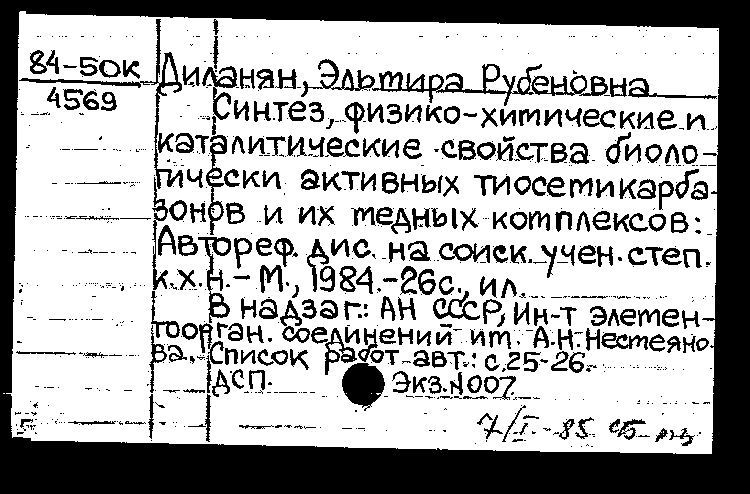 84-5ОК
4569
Диланян, Эльмира Рубеновна
Синтез, физико-химические и
каталитические свойства биоло-
гически активных тиосемикарба-
зонов и их медных комплексов:
Автореф. дис. на соиск. учен. степ.
к.х.н. - М., 1984.-26с., ил.
В надзаг.: АН СССР, Ин-т элемен-
тоорган. соединений им. А.Н. Несмеяно-
ва. Список работ авт.: с.25-26.
ДСП. Экз.N007.
7/I-85